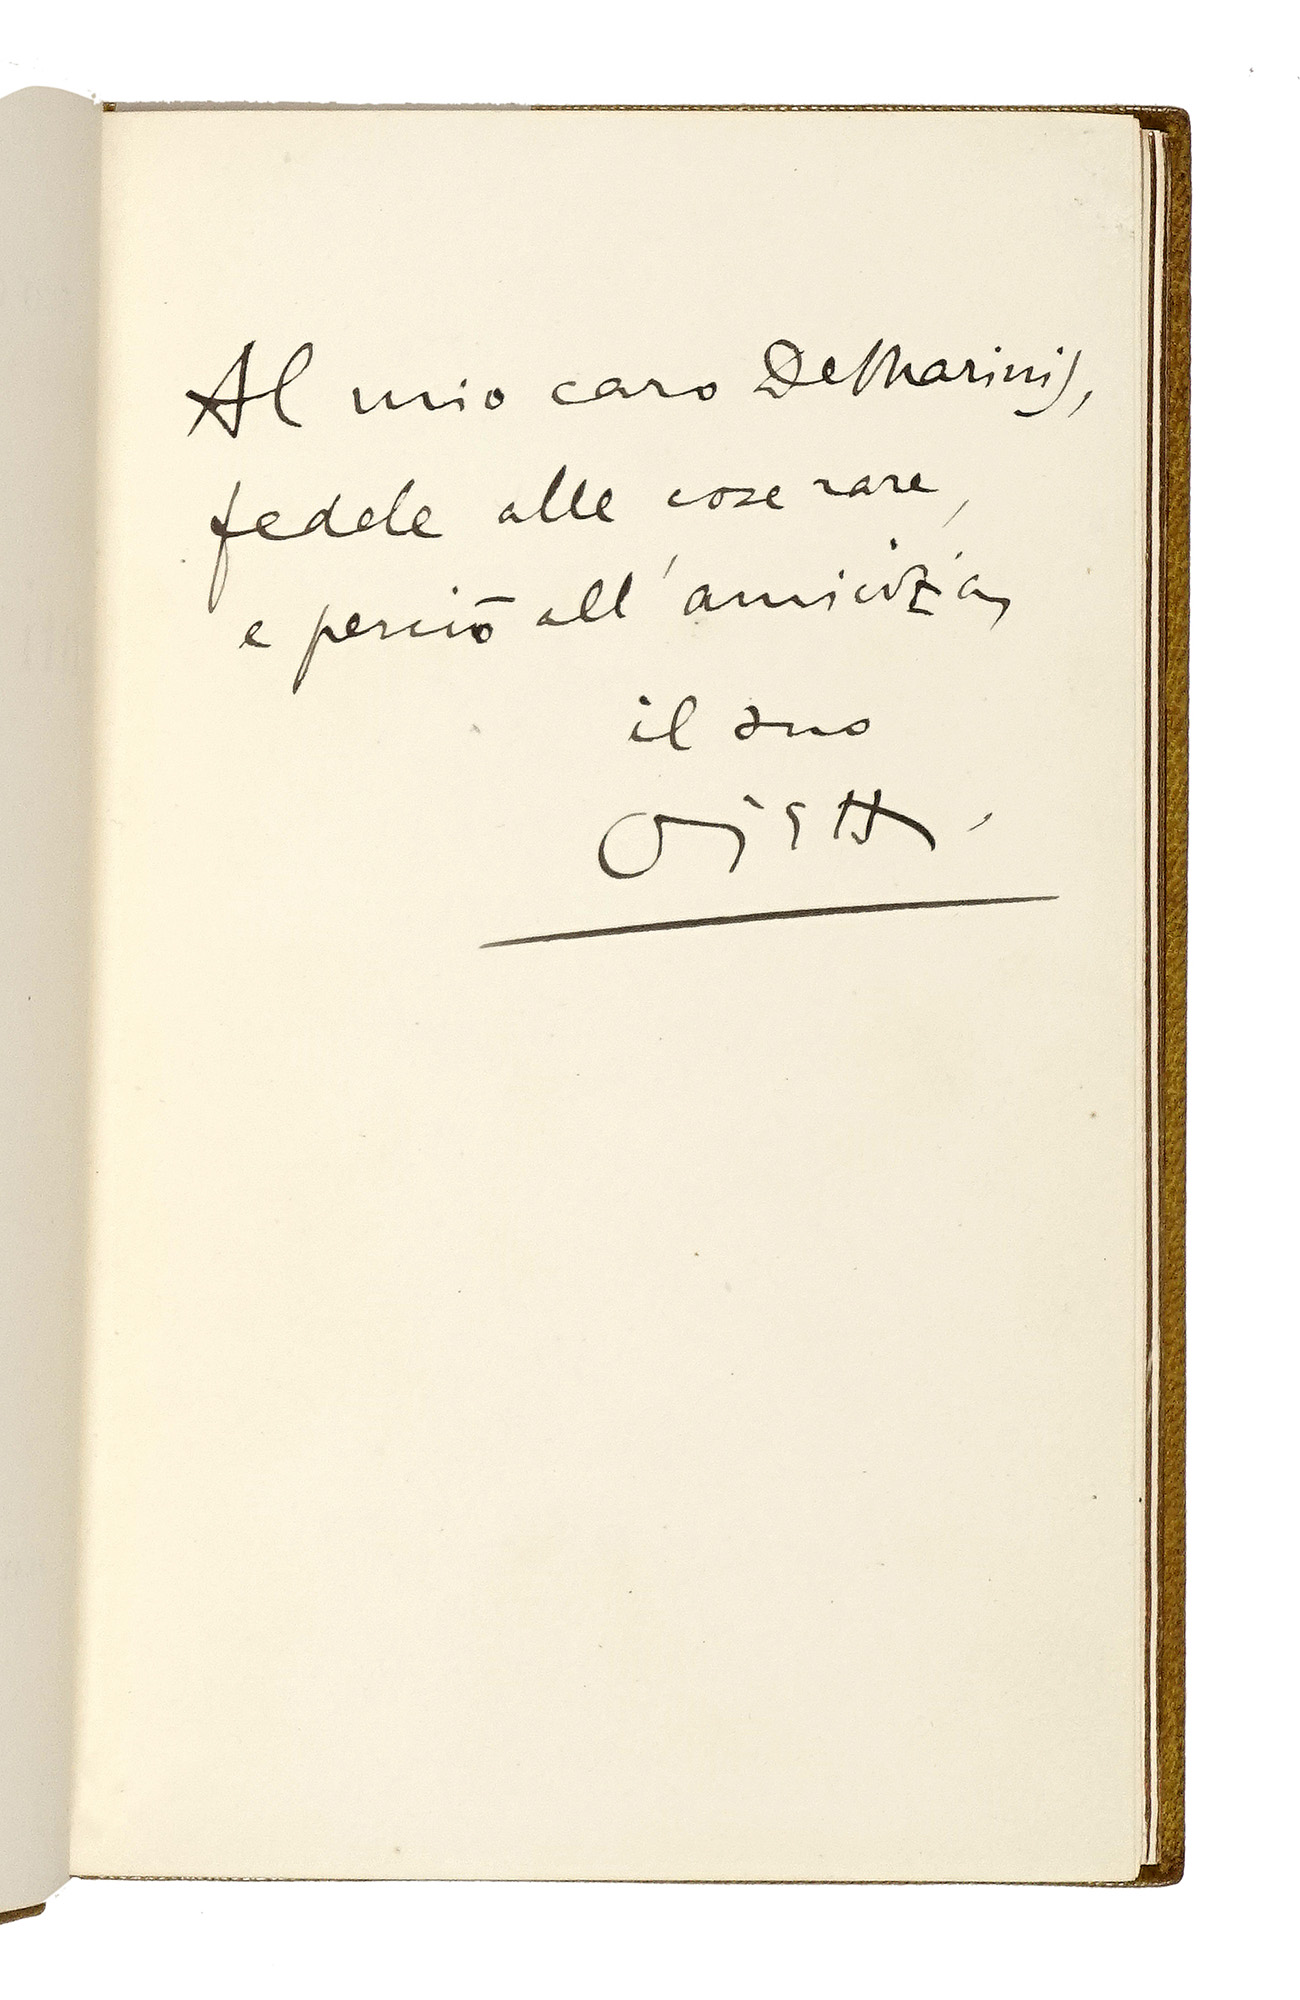 Al mio caro DeMarinis,
fedele alle cose rare,
e perciò all'amicizia,
il suo
Ojetti.